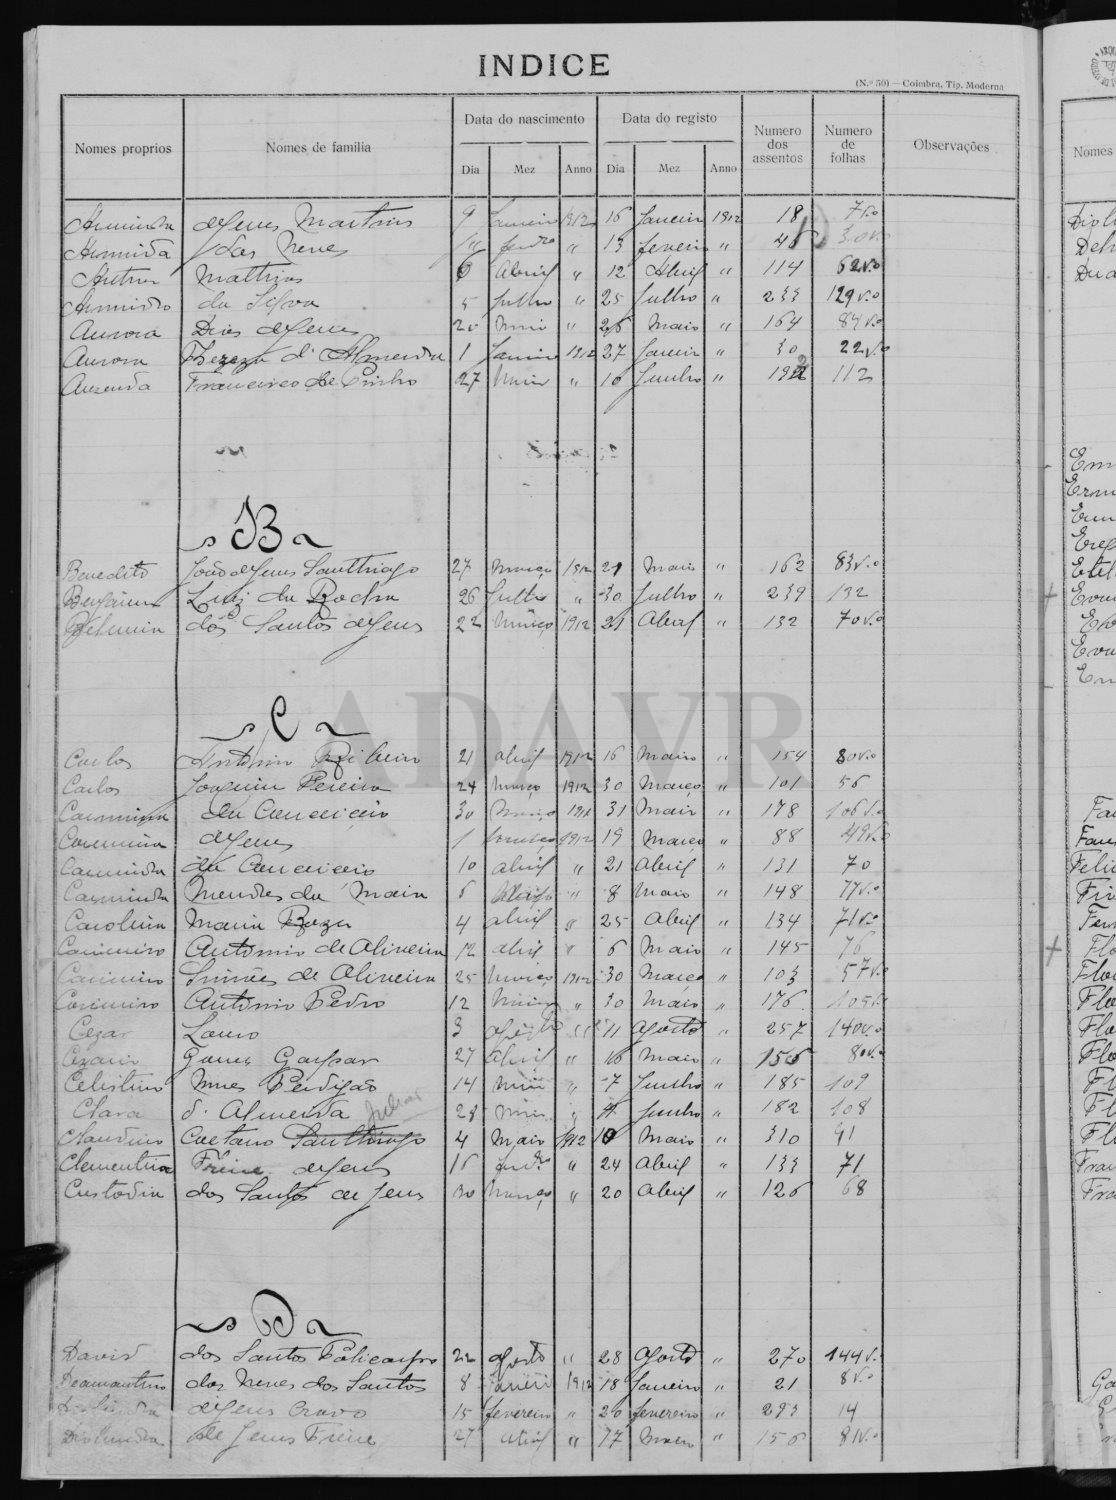 INDICE
(N.º 50) — Coimbra, Tip. Moderna
Nomes proprios Nomes de familia Data do nascimento Data do registo Numero dos assentos Numero de folhas Observações
Dia Mez Anno Dia Mez Anno
Arminda de Jesus Martins 9 Janeiro 1912 16 Janeiro 1912 18 7 v.o
Arminda das Neves " 13 Fevereiro " 46 30 v.o
Arthur Mathias 6 Abril " 12 Abril " 114 62 v.o
Armindo da Silva 5 Julho " 25 Julho " 233 129 v.o
Aurora Dias de Jesus 20 Maio " 26 Maio " 164 84 v.o
Aurora Thereza d'Almeida 1 Janeiro 1912 27 Janeiro " 30 22 v.o
Auzenda Francisco de Pinho 27 Maio " 10 Junho " 192 112
B
Benedito João de Jesus Santhiago 27 Março 1912 21 Maio " 162 83 v.o
Benjamim Luiz da Rocha 26 Julho " 30 Julho " 239 132
Belmira dos Santos de Jesus 22 Março 1912 21 Abril " 132 70 v.o
ADAVR
C
Carlos Antonio Ribeiro 21 Abril 1912 16 Maio " 154 80 v.o
Carlos Joaquim Pereira 24 Março 1912 30 Março " 101 56
da Conceição 30 31 Maio " 178 106 v.o
de Jesus 1 1912 19 Março " 88 49 v.o
Carminda da Conceição 10 Abril " 21 Abril " 131 70
Carminda Mendes da Maia 6 " 8 Maio " 148 77 v.o
Carolina Maria 4 Abril " 25 Abril " 134 71 v.o
Casimiro Antonio de Oliveira 12 Abril " 6 Maio " 145 76
Casimiro Simões de Oliveira 25 Março 1912 30 Março " 103 57 v.o
Casimiro Antonio Pedro 12 Maio " 30 Maio " 176 105 v.o
Cezar Lauro 3 Agosto " 11 Agosto " 257 140 v.o
Cezario Gomes Gaspar 27 Abril " 16 Maio " 156 80 v.o
Celestino Nunes Perdigão 14 Maio " 7 Junho " 185 109
Clara d'Almeida 28 Maio " 4 Junho " 182 108
Claudino Caetano Santhiago Julião 4 Maio 1912 10 Maio " 310 91
Clementina Freire de Jesus 16 " 24 Abril " 133 71
Custodia dos Santos de Jesus 30 Março " 20 Abril " 126 68
D
David dos Santos Policarpo 22 Agosto " 28 Agosto " 270 144 v.
Deamantino das Neves dos Santos 8 Janeiro 1912 18 Janeiro " 21 8 v.o
de Jesus Cravo 15 Fevereiro " 26 Fevereiro " 293 14
Diolinda de Jesus Freire 27 Abril " 17 Maio " 156 81 v.o
Nomes